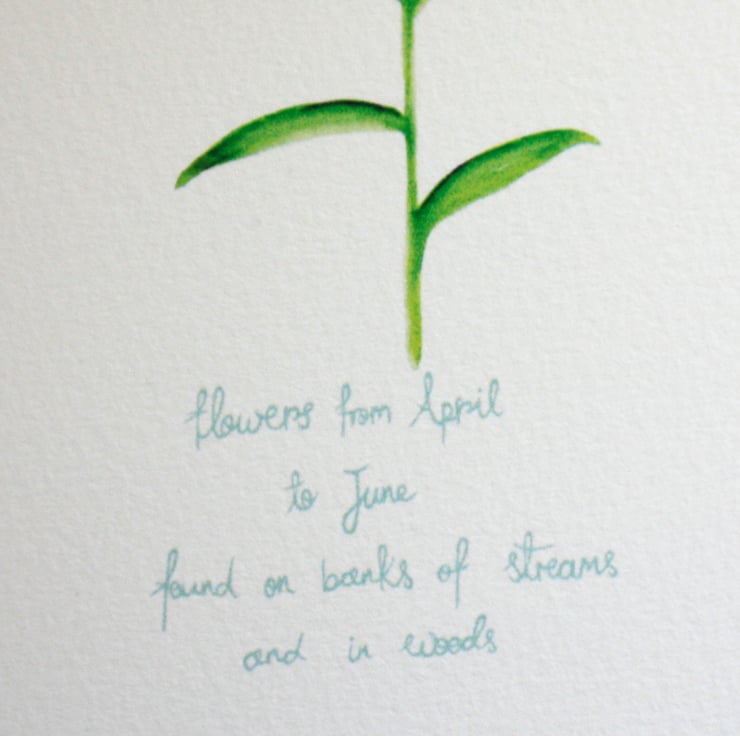 flowers from April
to June
found on banks of streams
and in woods